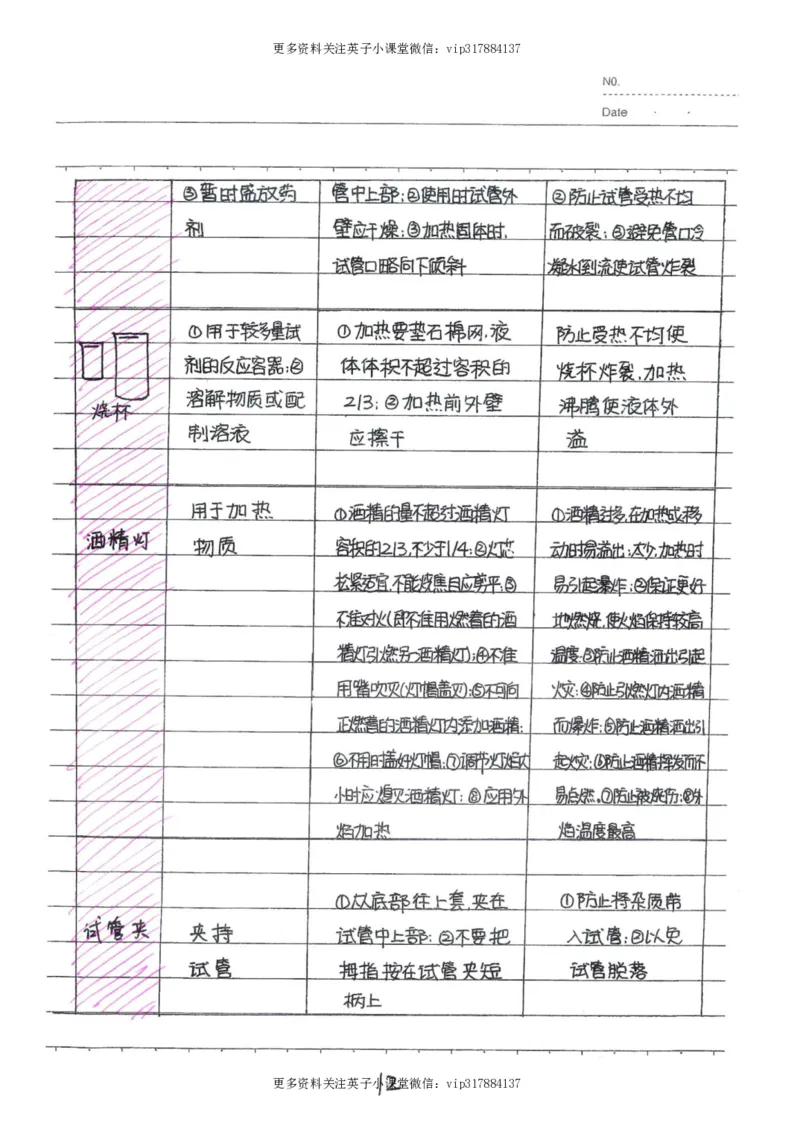 更多资料关注英子小课堂微信：vip317884137
NO.
Date
③暂时盛放药
剂
管中上部；②使用时试管外
壁应干燥；③加热固体时，
试管口略向下倾斜
②防止试管受热不均
而破裂；③避免管口冷
凝水到流使试管炸裂
烧杯
①用于较多量试
剂的反应容器；②
溶解物质或配
制溶液
①加热要垫石棉网，液
体体积不超过容积的
2/3；②加热前外壁
应擦干
防止受热不均使
烧杯炸裂，加热
沸腾使液体外
溢
酒精灯
用于加热
物质
①酒精的量不超过酒精灯
容积的2/3，不少于1/4；②灯芯
松紧适宜，不能烧焦且应剪平；③
不准对火（即不准用燃着的酒
精灯引燃另一酒精灯）；④不准
用嘴吹灭（灯帽盖灭）；⑤不可向
正燃着的酒精灯内添加酒精；
⑥不用时盖好灯帽；⑦调节灯焰大
小时应熄灭酒精灯；⑧应用外
焰加热
①酒精过多，在加热或移
动时易溢出；太少，加热时
易引起爆炸；②保证更好
地燃烧，使火焰保持较高
温度；③防止酒精洒出引起
火灾；④防止引燃灯内酒精
而爆炸；⑤防止酒精洒出引
起火灾；⑥防止酒精挥发而不
易点燃。⑦防止被烧伤；⑧外
焰温度最高
试管夹
夹持
试管
①从底部往上套，夹在
试管中上部；②不要把
拇指按在试管夹短
柄上
①防止将杂质带
入试管；②以免
试管脱落
12
更多资料关注英子小课堂微信：vip317884137